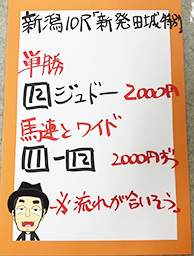 新潟10R「新発田城特別」
単勝
12 ジュドー 2000円
馬連とワイド
11-12 2000円ずつ
※流れが合いそう。